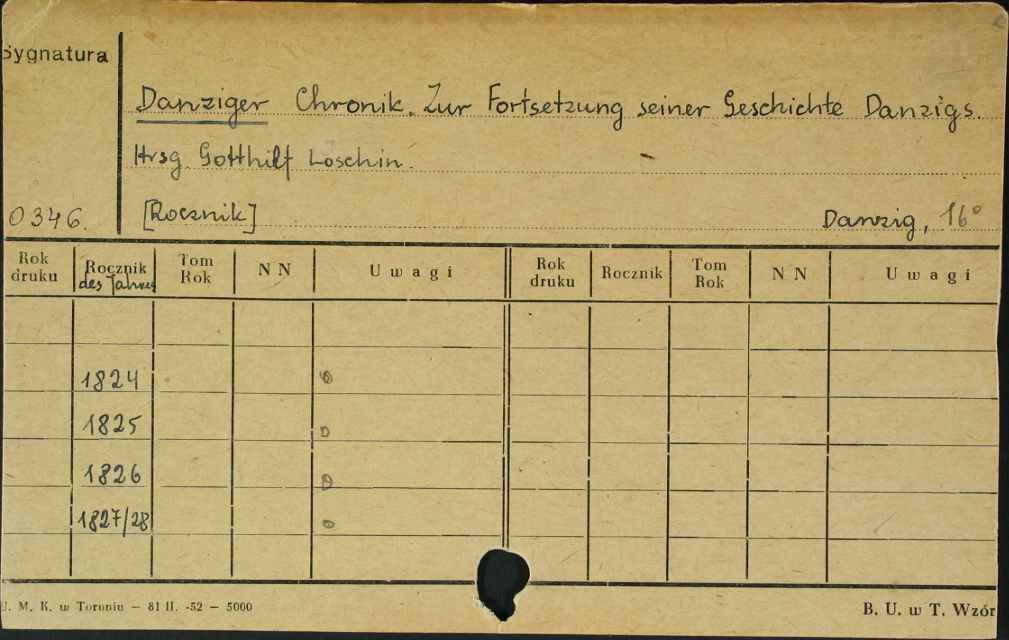 Sygnatura
Danziger Chronik. Zur Fortsetzung seiner Geschichte Danzigs.
Hrsg. Gotthilf Löschin.
0346. [Rocznik] Danzig, 16°
Rok druku Rocznik des Jahres Tom Rok N N Uwagi Rok druku Rocznik Tom Rok N N Uwagi
1824
1825
1826
1827/28
U. M. K. w Toruniu – 81 II. -52 – 5000 B. U. w T. Wzór